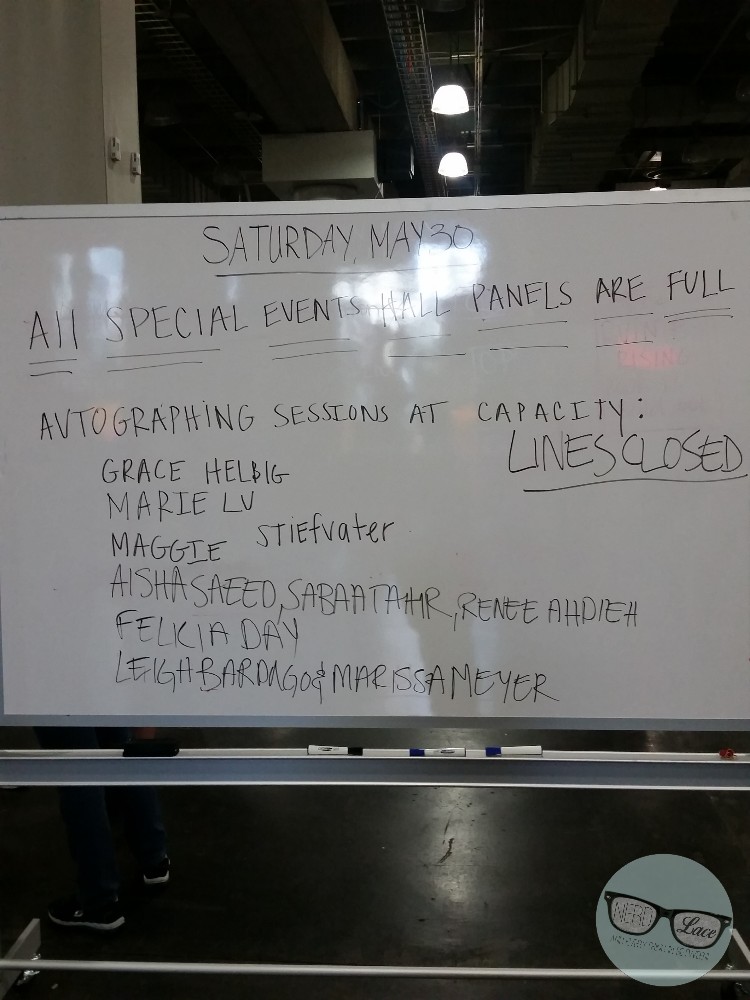 SATURDAY, MAY 30
All SPECIAL EVENTS HALL PANELS ARE FULL
AUTOGRAPHING SESSIONS AT CAPACITY:
LINES CLOSED
GRACE HELBIG
MARIE LU
MAGGIE STIEFVATER
AISHA SAEED, SABAA TAHIR, RENEE AHDIEH
FELICIA DAY
LEIGH BARDUGO & MARISSA MEYER
NERD Lace